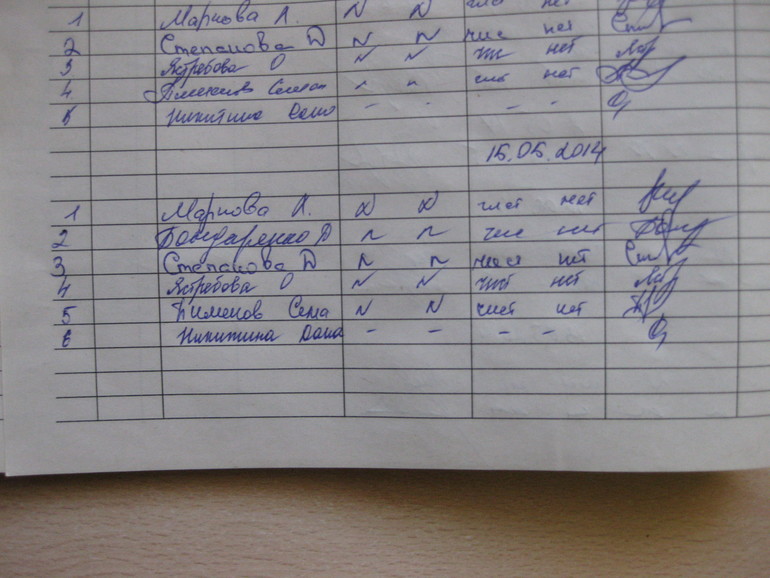 1 Маркова Л. N N чист нет
2 Степанова Д N N чис нет
3 Ястребова О N N чи нет
4 Пименов Семен чис нет
5 Никитина Даша - - - -
15.05.2014
1 Маркова Л. N N чист нет
2 Бондаренко Д N N чис нет
3 Степанова Д N N чист нет
4 Ястребова О N N чист нет
5 Пименов Сема N N чист нет
6 Никитина Даша - - - -